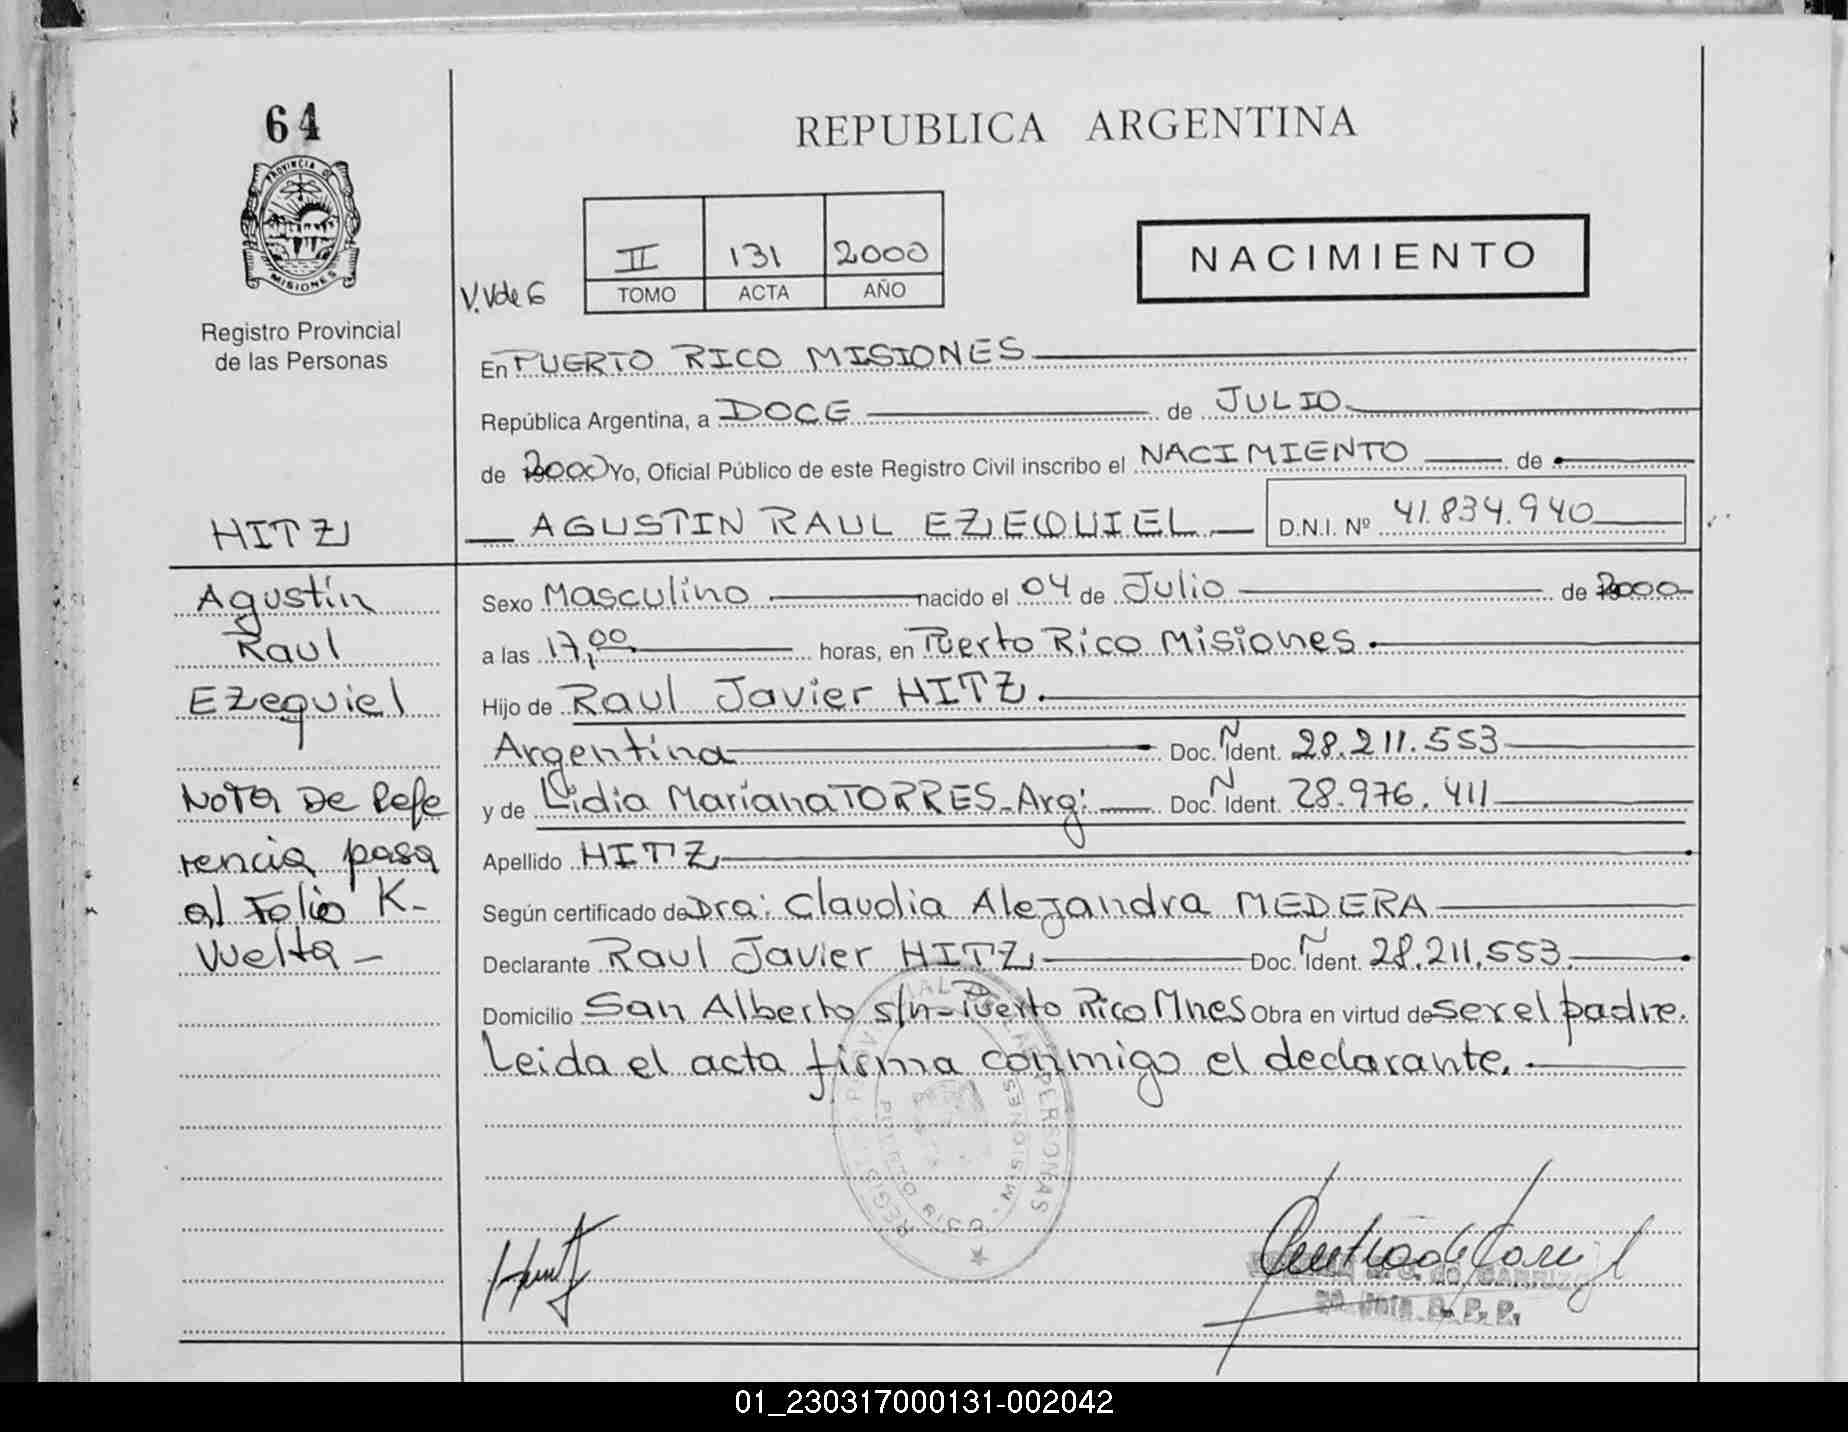 64
PROVINCIA DE
MISIONES
Registro Provincial
de las Personas
REPUBLICA ARGENTINA
II 131 2000
TOMO ACTA AÑO
V.Vde G
NACIMIENTO
En PUERTO RICO MISIONES
República Argentina, a DOCE de JULIO
de 2000 Yo, Oficial Público de este Registro Civil inscribo el NACIMIENTO de
AGUSTIN RAUL EZEQUIEL D.N.I. Nº 41.834.940
HITZ
Agustín
Raul
Ezequiel
Nota De Refe
rencia pasa
al Folio K-
Vuelta -
Sexo Masculino nacido el 04 de Julio de 2000
a las 17,00 horas, en Puerto Rico Misiones.
Hijo de Raul Javier HITZ.
Argentina Doc. Ñ Ident. 28.211.553
y de Lidia Mariana TORRES-Arg: Doc. N Ident. 28.976.411
Apellido HITZ
Según certificado de Dra: Claudia Alejandra MEDERA
Declarante Raul Javier HITZ Doc. Ñ Ident. 28.211.553.
Domicilio San Alberto s/n-Puerto Rico Mnes Obra en virtud de ser el padre.
Leida el acta firma conmigo el declarante.
PERSONAS
PUERTO RICO - MISIONES
de CARRIZO
R. P. P.
01_230317000131-002042